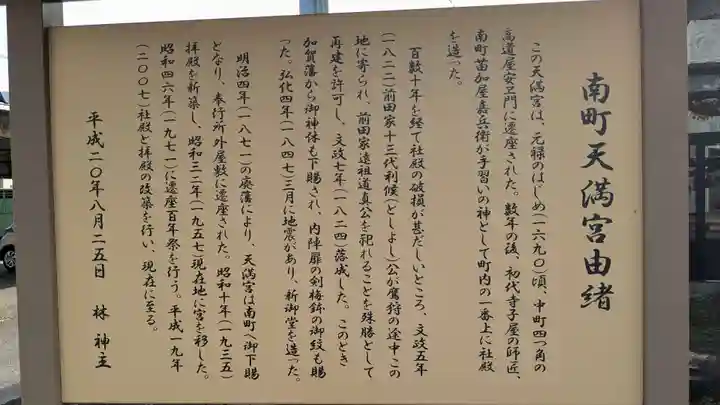 南町天満宮由緒
この天満宮は、元禄のはじめ(一六九〇)頃、中町四つ角の
高道屋安ヱ門に遷座された。数年の後、初代寺子屋の師匠、
南町苗加屋嘉兵衛が手習いの神として町内の一番上に社殿
を造った。
百数十年を経て社殿の破損が甚だしいところ、文政五年
(一八二二)前田家十三代利候(としよし)公が鷹狩の途中この
地に寄られ、前田家遠祖道真公を祀れることを殊勝として
再建を許可し、文政七年(一八二四)落成した。このとき
加賀藩から御神体も下賜され、内陣扉の剣梅鉢の御紋も賜
った。弘化四年(一八四七)三月に地震があり、新御堂を造った。
明治四年(一八七一)の廃藩により、天満宮は南町へ御下賜
となり、奉行所外屋敷に遷座された。昭和十年(一九三五)
拝殿を新築し、昭和三二年(一九五七)現在地に宮を移した。
昭和四六年(一九七一)に遷座百年祭を行う。平成一九年
(二〇〇七)社殿と拝殿の改築を行い、現在に至る。
平成二〇年八月二五日 林 神主